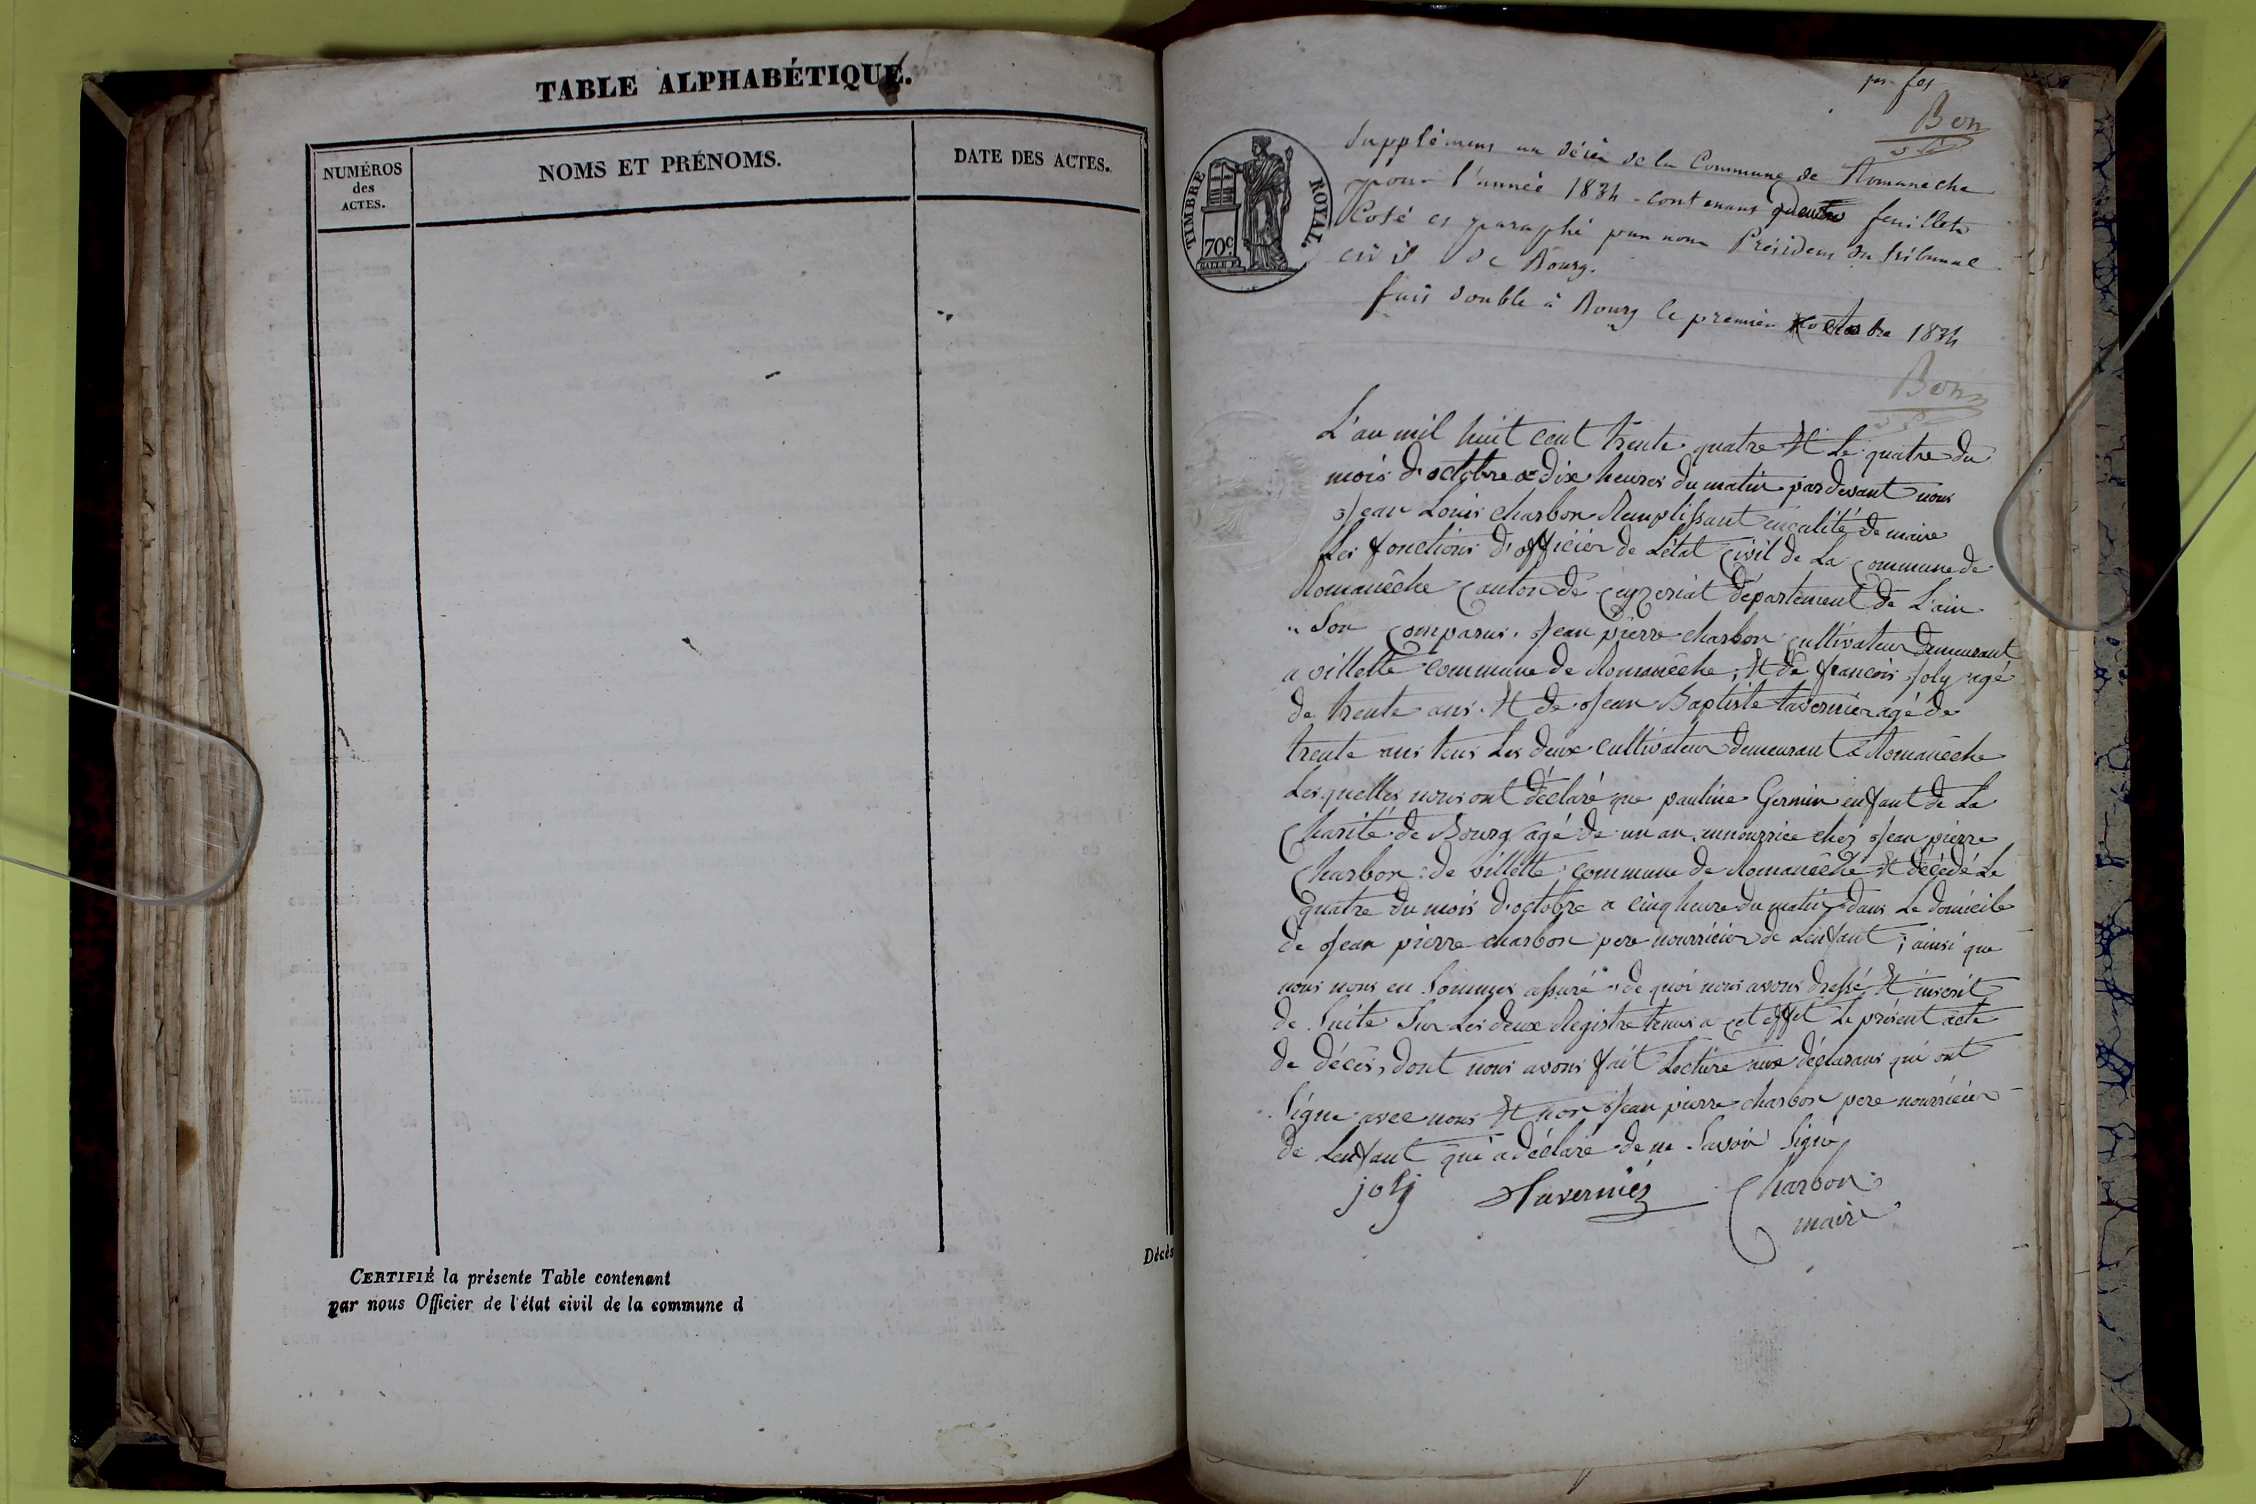 TABLE ALPHABÉTIQUE.
NUMÉROS
des
ACTES.
NOMS ET PRÉNOMS.
DATE DES ACTES.
CERTIFIÉ la présente Table contenant
par nous Officier de l'état civil de la commune d
Décès
Bon
TIMBRE ROYAL.
70c.
Supplément au décès de la Commune de Romaneche
pour l'année 1834 - contenant feuillets
Coté et paraphé par nous Président du tribunal
civil de Bourg.
fait double à Bourg le premier octobre 1834
Bon
L'an mil huit cent trente quatre Et Le quatre du
mois d'octobre a dix heures du matin par devant nous
Jean Louis charbon Remplissant en calité de maire
Les fonctions d'officier de L'état Civil de La Commune de
Romanêche Canton de Ceyzeriat département de L'ain
Son Comparus. Jean pierre charbon Cultivateur demeurant
a villette Commune de Romanêche, Et de francois Joly agé
de trente ans. Et de Jean Baptiste tavernier agé de
trente ans tous Les deux cultivateur demeurant a Romanêche
Les quelles nous ont déclaré que pauline Germin enfant de La
Charité de Bourg agé de un an, en nourrice chez Jean pierre
Charbon de villette Commune de Romanêche Et décédé Le
quatre du mois d'octobre a cinq heure du matin dans Le domicile
de Jean pierre charbon pere nourricier de L'enfant; ainsi que
nous nous en Sommes assuré, de quoi nous avons dressé Et inscrit
de Suite Sur Les deux Registre tenus a cet effet Le présent acte
de décès, dont nous avons fait Lecture aux déclarans qui ont
Signe avec nous Et non Jean pierre charbon pere nourricier
de Lenfant qui a déclaré de ne Savoir Signé
joly Tavernier Charbon
maire